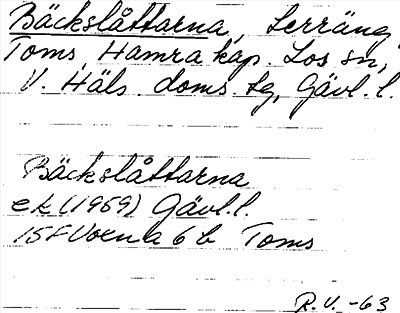 Bäckslåttarna, terräng
Toms, Hamra kap. Los sn,
V. Häls. doms. tg, Gävl. l.
Bäckslåttarna
ek (1959) Gävl. l.
15F Voxna 6 b Toms
R. V. -63